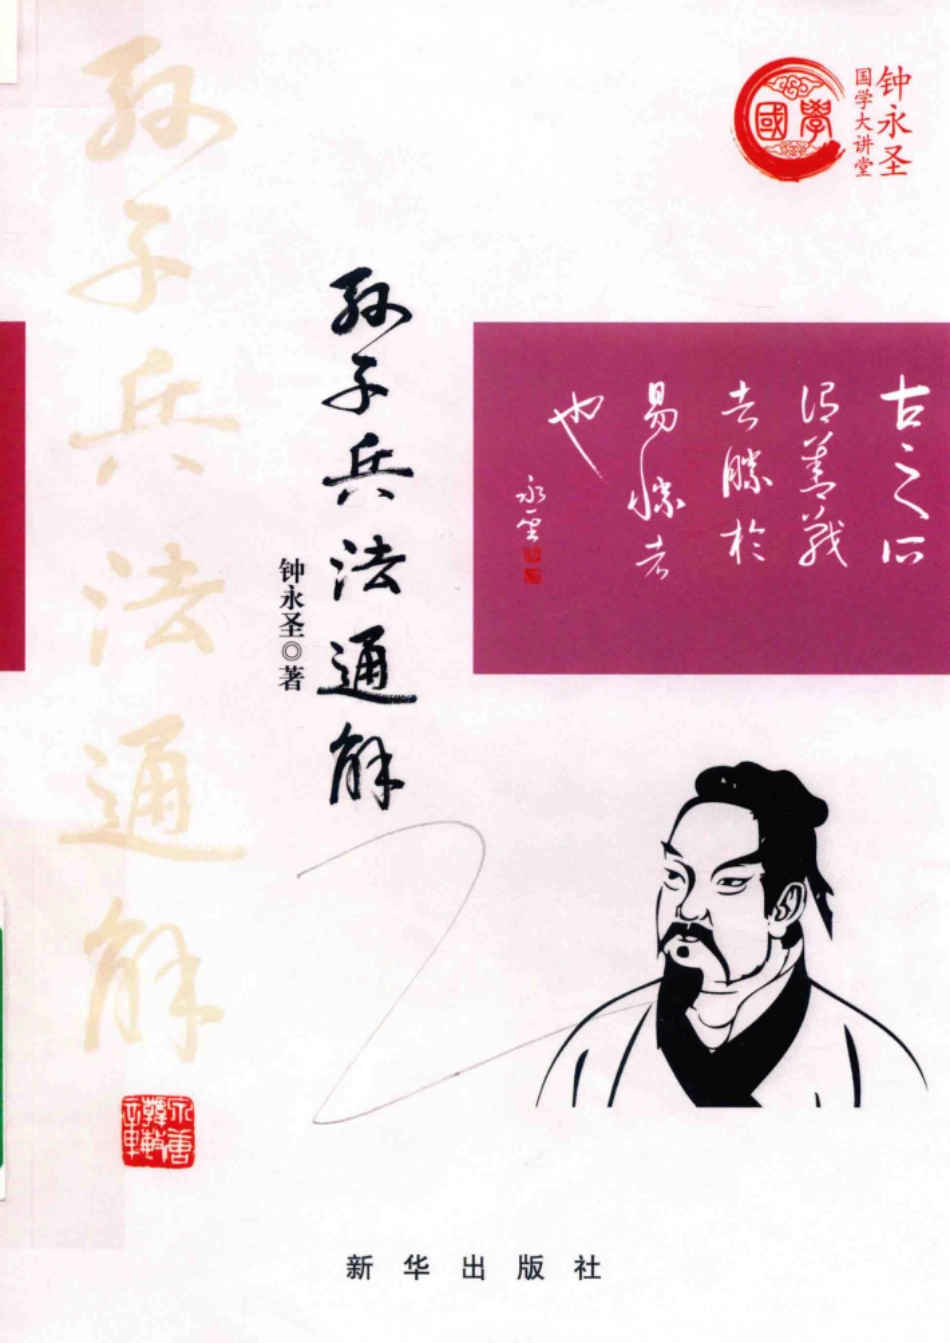 钟永圣
国学大讲堂
國學
孙子兵法通解
孙子兵法通解
钟永圣◎著
古之所
谓善战
者胜于
易胜者
也
永圣
新华出版社